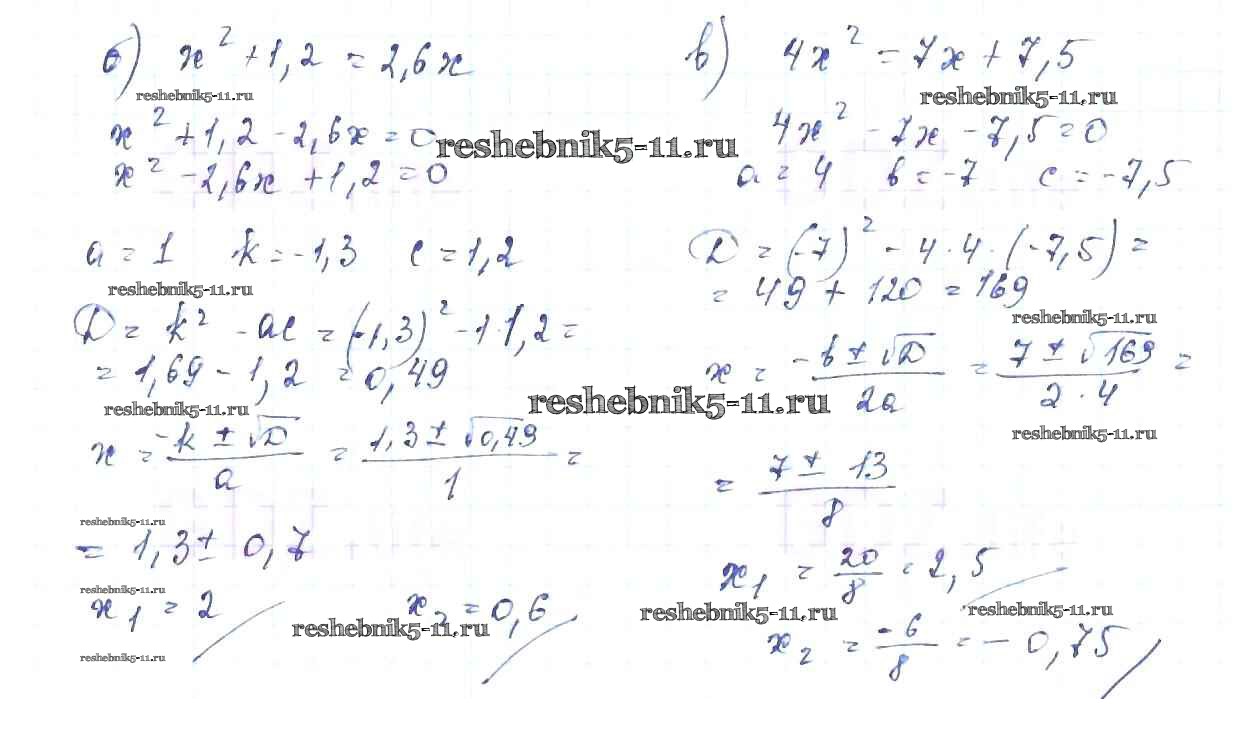 б) x² + 1,2 = 2,6x
reshebnik5-11.ru
x² + 1,2 - 2,6x = 0
reshebnik5-11.ru
x² - 2,6x + 1,2 = 0
a = 1 k = -1,3 c = 1,2
reshebnik5-11.ru
D = k² - ac = (-1,3)² - 1·1,2 =
= 1,69 - 1,2 = 0,49
reshebnik5-11.ru
reshebnik5-11.ru
x = (-k ± √D)/a = (1,3 ± √0,49)/1 =
reshebnik5-11.ru
= 1,3 ± 0,7
reshebnik5-11.ru
x₁ = 2 x₂ = 0,6
reshebnik5-11.ru
reshebnik5-11.ru
в) 4x² = 7x + 7,5
reshebnik5-11.ru
4x² - 7x - 7,5 = 0
a = 4 b = -7 c = -7,5
D = (-7)² - 4·4·(-7,5) =
= 49 + 120 = 169
reshebnik5-11.ru
x = (-b ± √D)/2a = (7 ± √169)/2·4 =
reshebnik5-11.ru
= (7 ± 13)/8
x₁ = 20/8 = 2,5
reshebnik5-11.ru
reshebnik5-11.ru
x₂ = -6/8 = -0,75